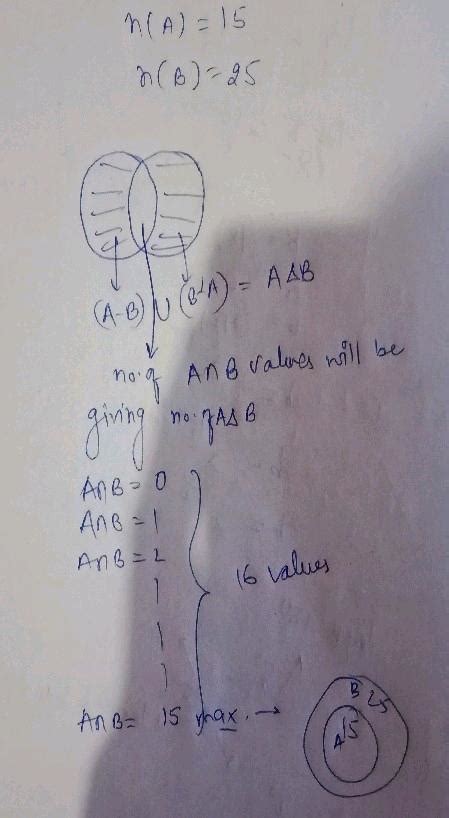 n(A) = 15
n(B) = 25
(A-B) ∪ (B-A) = A∆B
no. of A∩B values will be
giving no. of A∆B
A∩B = 0
A∩B = 1
A∩B = 2
16 values
A∩B = 15 max. →
B 25
A 15